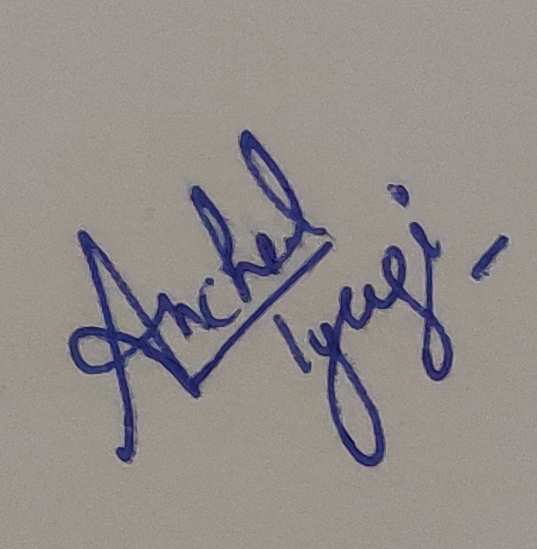 Anchal
Tyagi